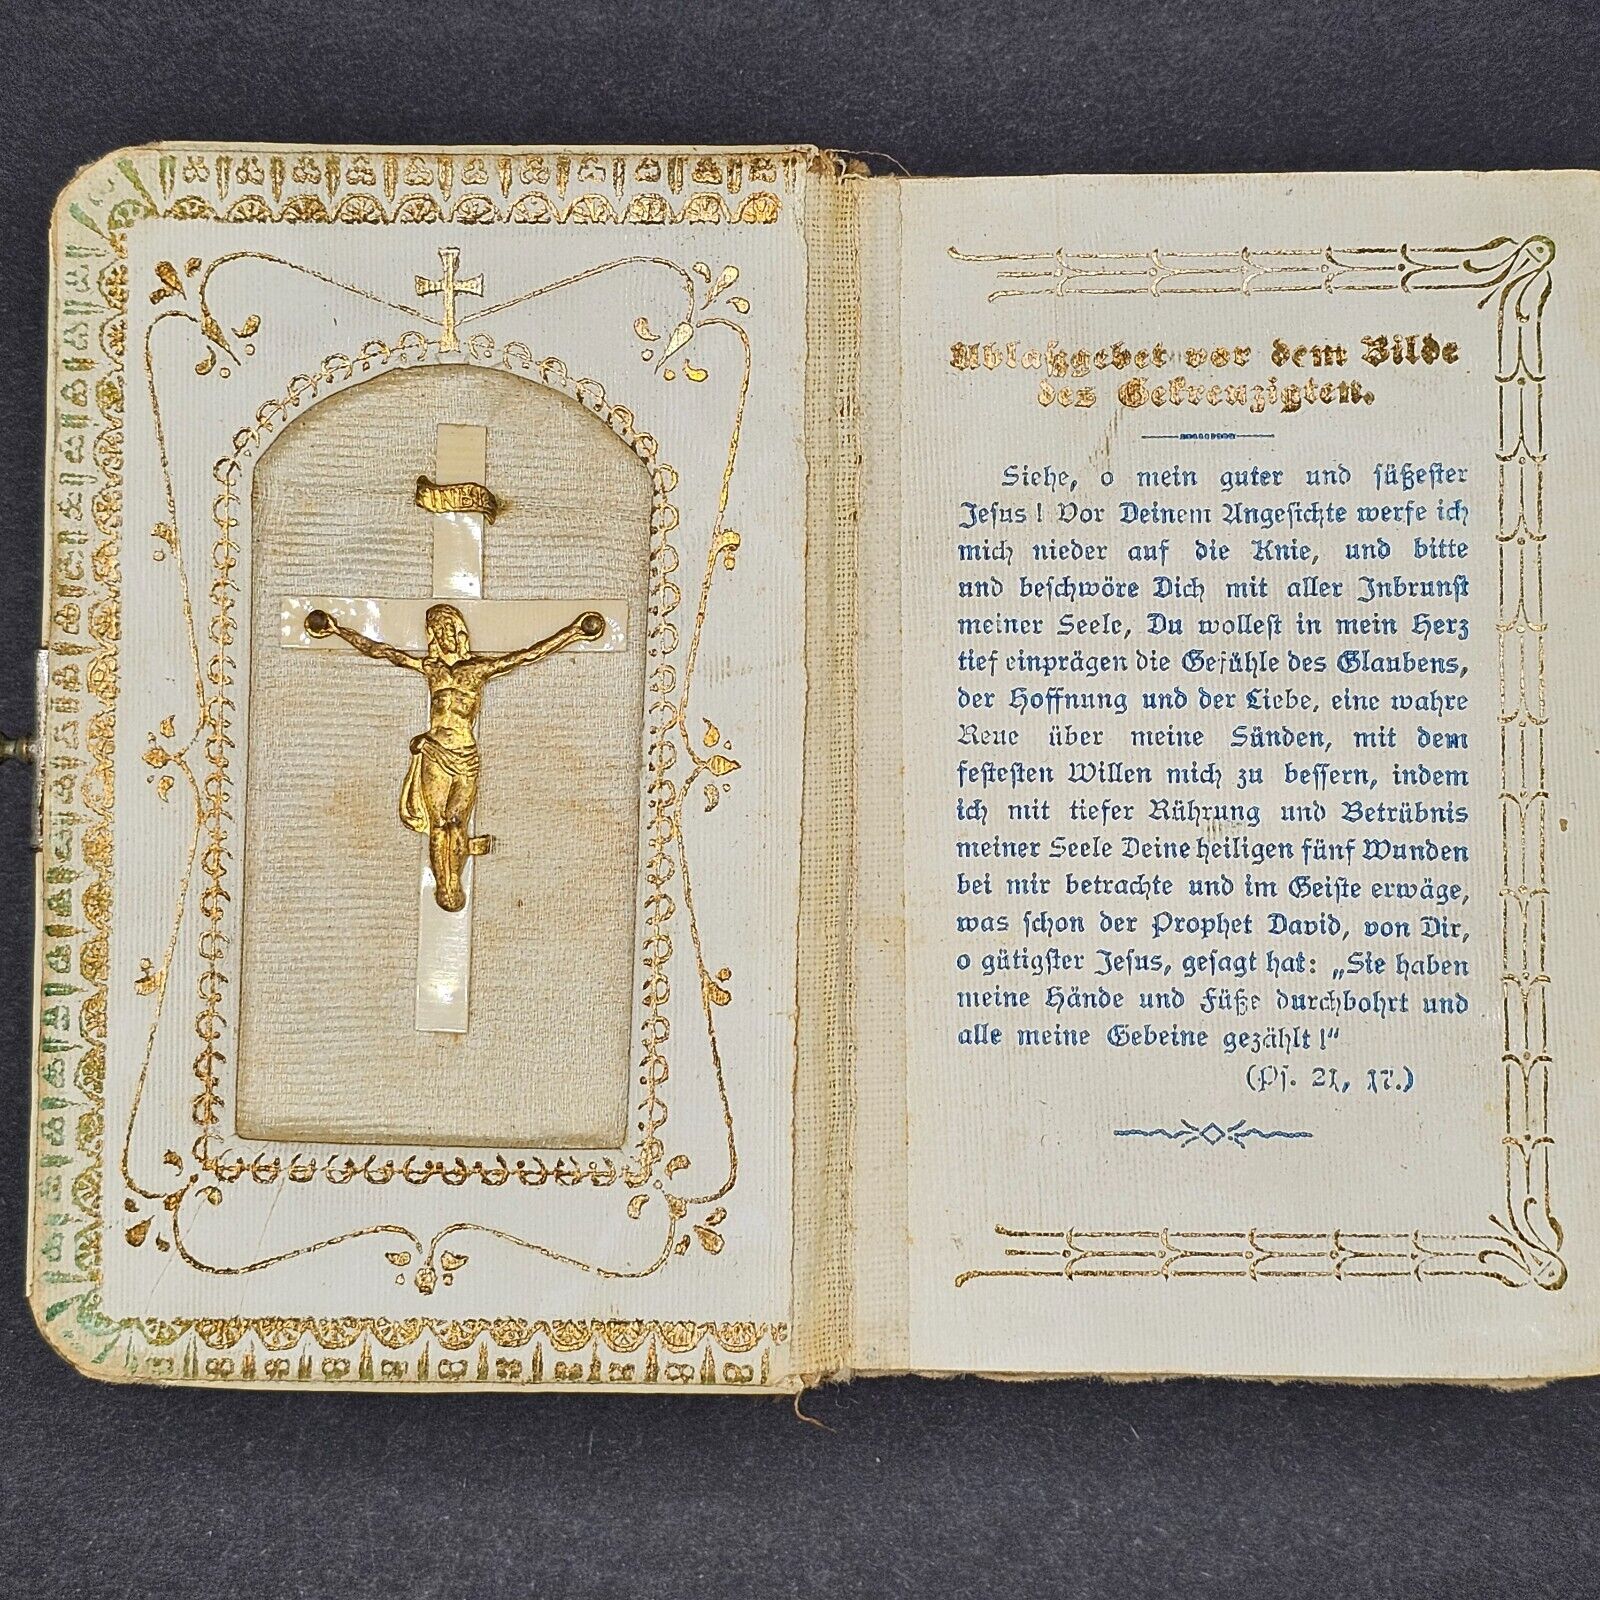 INRI
Ablaßgebet vor dem Bilde
des Gekreuzigten.
Siehe, o mein guter und süßester
Jesus! Vor Deinem Angesichte werfe ich
mich nieder auf die Knie, und bitte
und beschwöre Dich mit aller Inbrunst
meiner Seele, Du wollest in mein Herz
tief einprägen die Gefühle des Glaubens,
der Hoffnung und der Liebe, eine wahre
Reue über meine Sünden, mit dem
festesten Willen mich zu bessern, indem
ich mit tiefer Rührung und Betrübnis
meiner Seele Deine heiligen fünf Wunden
bei mir betrachte und im Geiste erwäge,
was schon der Prophet David, von Dir,
o gütigster Jesus, gesagt hat: „Sie haben
meine Hände und Füße durchbohrt und
alle meine Gebeine gezählt!“
(Ps. 21, 17.)